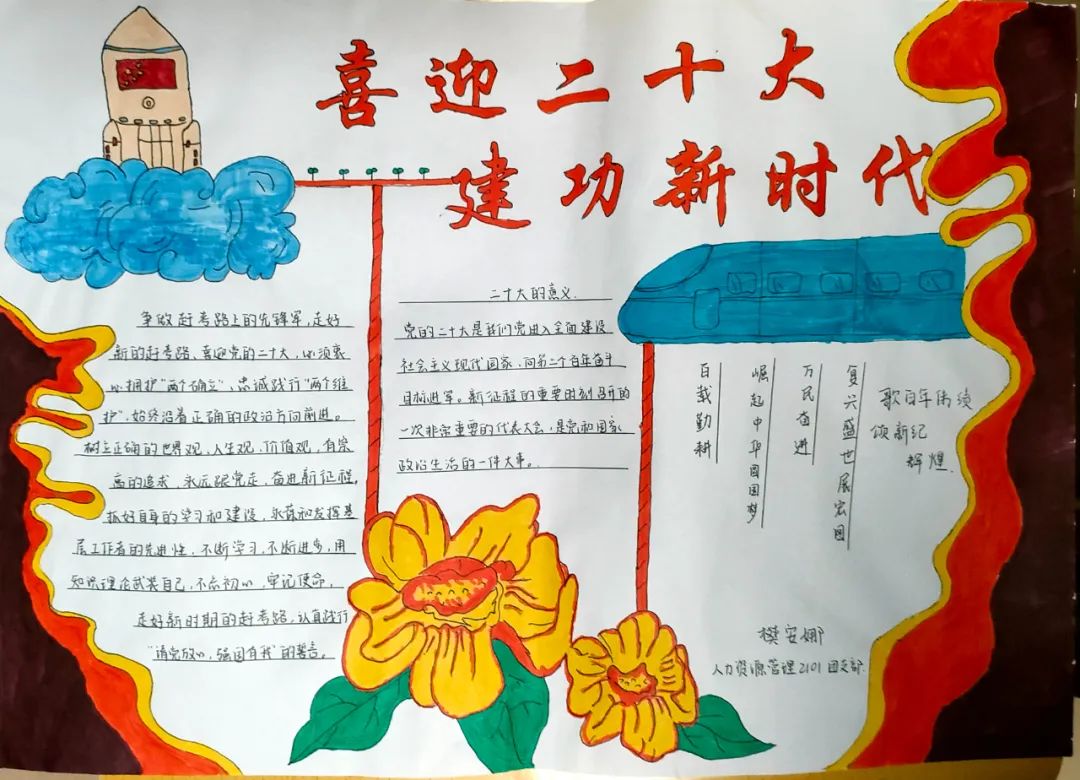 喜迎二十大
建功新时代
争做赶考路上的先锋军,走好
新的赶考路、喜迎党的二十大,必须衷
心拥护“两个确立”、忠诚践行“两个维
护”.始终沿着正确的政治方向前进。
树立正确的世界观,人生观,价值观,有崇
高的追求,永远跟党走,奋进新征程,
抓好自身的学习和建设,永葆和发挥基
层工作者的先进性,不断学习,不断进步,用
知识理论武装自己,不忘初心,牢记使命,
走好新时期的赶考路,认真践行
“请党放心,强国有我”的誓言。
二十大的意义.
党的二十大是我们党进入全面建设
社会主义现代国家、向第二个百年奋斗
目标进军。新征程的重要时刻召开的
一次非常重要的代表大会,是党和国家
政治生活的一件大事。
百载勤耕
崛起中华圆国梦
万民奋进
复兴盛世展宏图
歌百年伟绩
颂新纪
辉煌.
樊安娜
人力资源管理2101团支部.